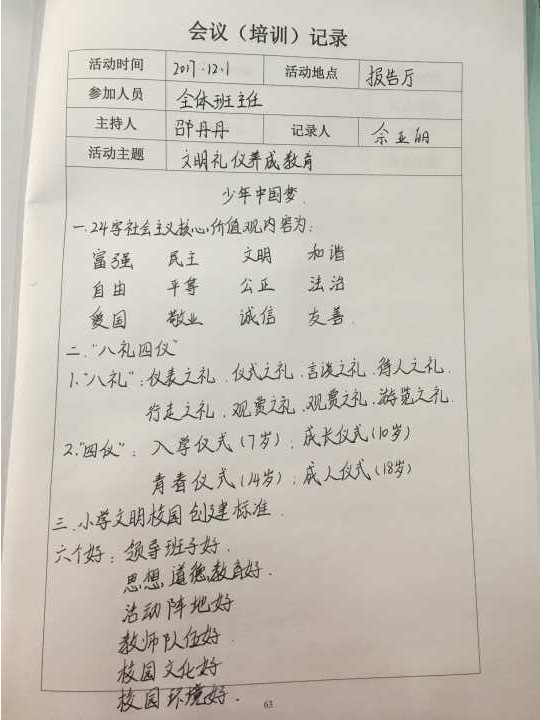 会议（培训）记录
活动时间 2017.12.1 活动地点 报告厅
参加人员 全体班主任
主持人 邵丹丹 记录人 佘亚明
活动主题 文明礼仪养成教育
少年中国梦
一.24字社会主义核心价值观内容为:
富强 民主 文明 和谐
自由 平等 公正 法治
爱国 敬业 诚信 友善.
二."八礼四仪"
1."八礼":仪表之礼、仪式之礼、言谈之礼、待人之礼、
行走之礼、观赏之礼、观赏之礼、游览之礼.
2."四仪": 入学仪式(7岁);成长仪式(10岁)
青春仪式(14岁);成人仪式(18岁)
三.小学文明校园创建标准.
六个好:领导班子好.
思想道德教育好.
活动阵地好
教师队伍好.
校园文化好
校园环境好.
63